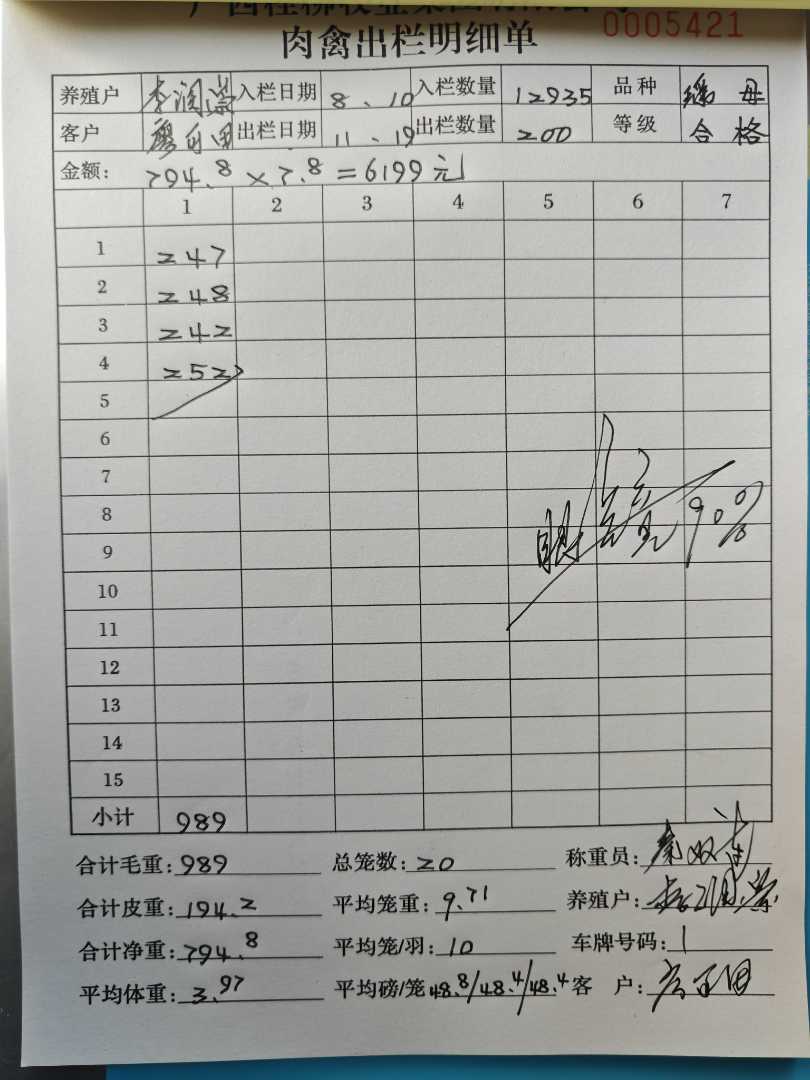 0005421
肉禽出栏明细单
养殖户 李润崇 入栏日期 8、10 入栏数量 12935 品种 母
客户 出栏日期 11、19 出栏数量 200 等级 合格
金额: 794.8×7.8=6199元
1 2 3 4 5 6 7
1 247
2 248
3 242
4 252
5
6
7
8
9
10
11
12
13
14
15
90%
小计 989
合计毛重: 989 总笼数: 20 称重员:
合计皮重: 194.2 平均笼重: 9.71 养殖户: 李润崇
合计净重: 794.8 平均笼/羽: 10 车牌号码: 1
平均体重: 3.97 平均磅/笼 48.8/48.4/48.4 客 户: